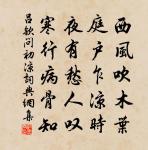 西風吹木葉
庭戶乍涼時
夜有愁人叹
寒行病骨知
呂欽问初涼詞典網集